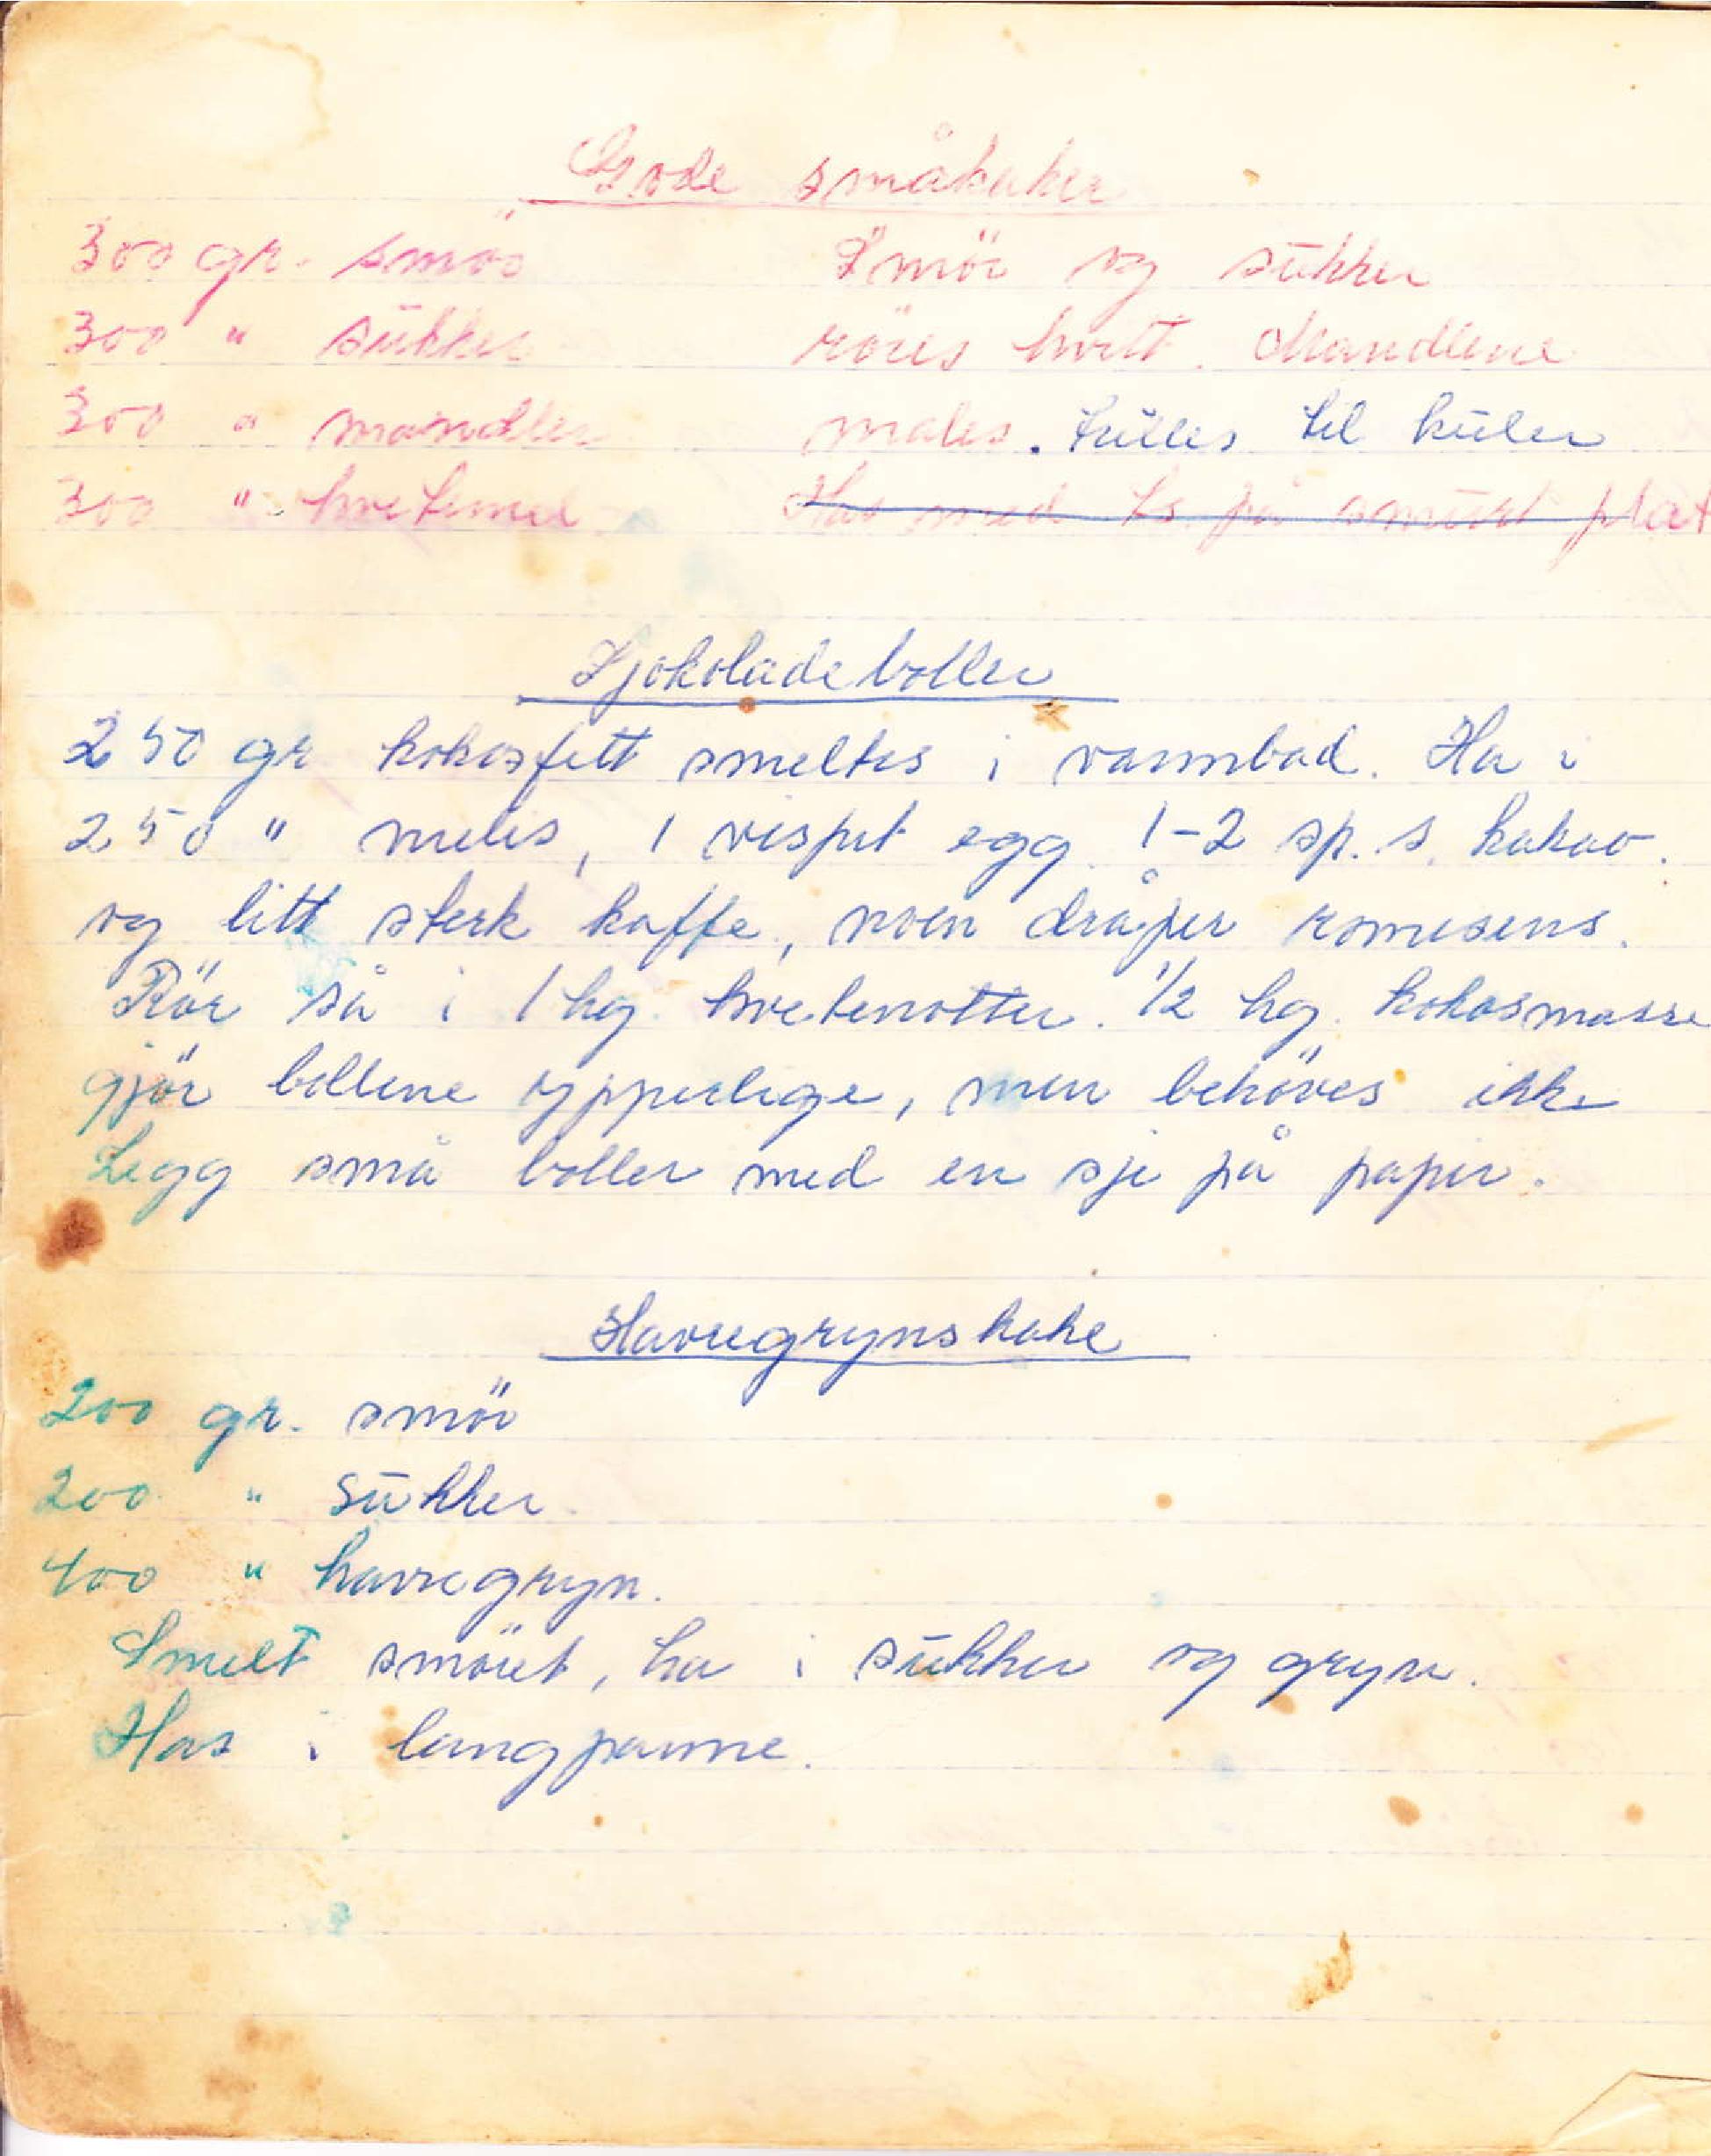 Gode småkaker
300 gr. smör
300 " sukker
300 " mandler
300 " hvetemel
Smör og sukker
röres hvitt. Mandlene
males. trilles til kuler
Has med ts. på smurt plat
Sjokoladeboller
250 gr kokosfett smeltes i vannbad. Ha i
250 " melis, 1 vispet egg. 1-2 sp. s. kakao.
og litt sterk kaffe, noen dråper romesens.
Rör så i 1 hg. hvetenötter. 1/2 hg. kokosmasse
gjör bollene ypperlige, men behöves ikke
Legg små boller med en sje på papir.
Havregrynskake
200 gr. smör
200 " sukker
400 " havregryn.
Smelt smöret, ha i sukker og gryn.
Has i langpanne.